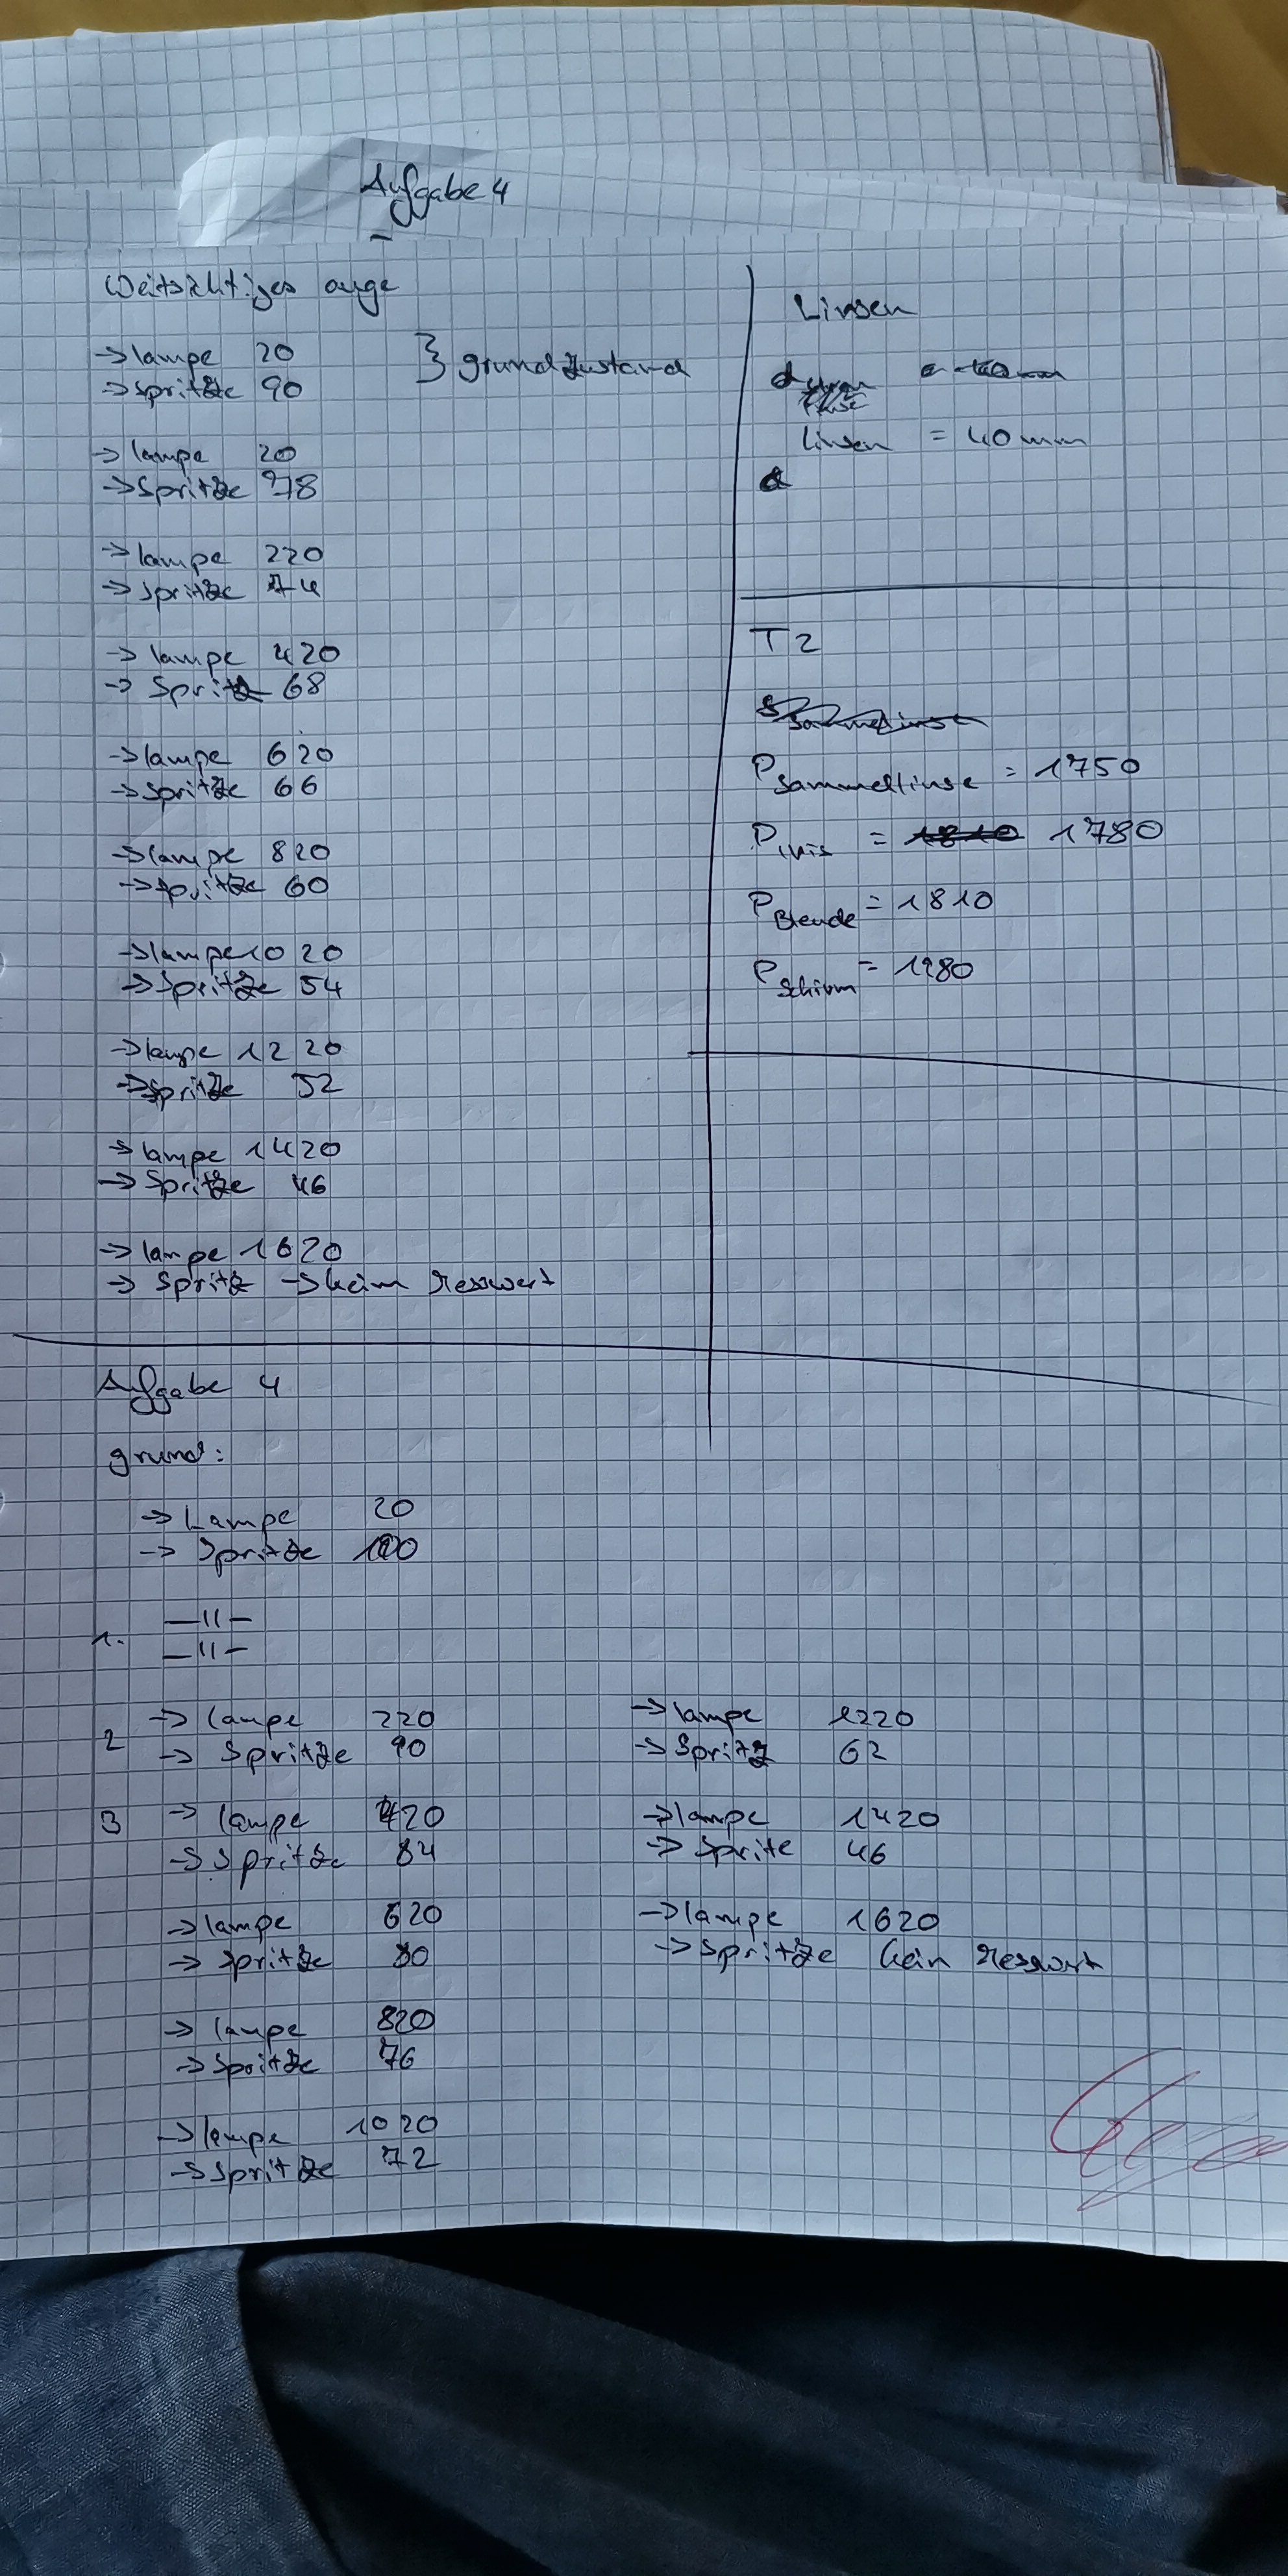 Aufgabe 4
Weitsichtiges auge
-> lampe 20
-> Spritze 90
} grundzustand
-> lampe 20
-> Spritze 78
-> lampe 220
-> Spritze 74
-> lampe 420
-> Spritze 68
-> lampe 620
-> Spritze 66
-> lampe 820
-> Spritze 60
-> lampe 1020
-> Spritze 54
-> lampe 1220
-> Spritze 52
-> lampe 1420
-> Spritze 46
-> lampe 1620
-> Spritz -> kein Messwert
Linsen
Linsen = 40 mm
d
T2
P Sammellinse = 1750
P Iris = 1780
P Blende = 1810
P Schirm =
Aufgabe 4
grund:
-> Lampe 20
-> Spritze 100
1. —11—
—11—
2 -> lampe 220
-> Spritze 90
3 -> lampe 420
-> Spritze 84
-> lampe 620
-> Spritze 80
-> lampe 820
-> Spritze 76
-> lampe 1020
-> Spritze 72
-> lampe 1220
-> Spritz 62
-> lampe 1420
-> Sprite 46
-> lampe 1620
-> Spritze kein Messwert